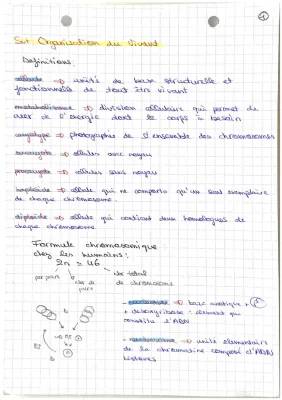 1
Organisation du Vivant
Définitions:
cellule → unités de base structurelle et
fonctionnelle de tout être vivant
métabolisme → division cellulaire qui permet de
créer de l'énergie dont le corps à besoin
caryotype → photographie de l'ensemble des chromosomes
eucaryote → cellules avec noyau
procaryote → cellules sans noyau
haploïde → cellule qui ne comporte qu'un seul exemplaire
de chaque chromosome.
diploïde → cellule qui contient deux homologues de
chaque chromosome
Formule chromosomique
chez les humains:
2n = 46
par paire nbr de paire nbr total de chromosome
- nucléotide → base azotique + P
+ désoxyribose: élément qui
constitue l'ADN
- nucléosome → unité élémentaire
de la chromatine composé d'ADN
histones